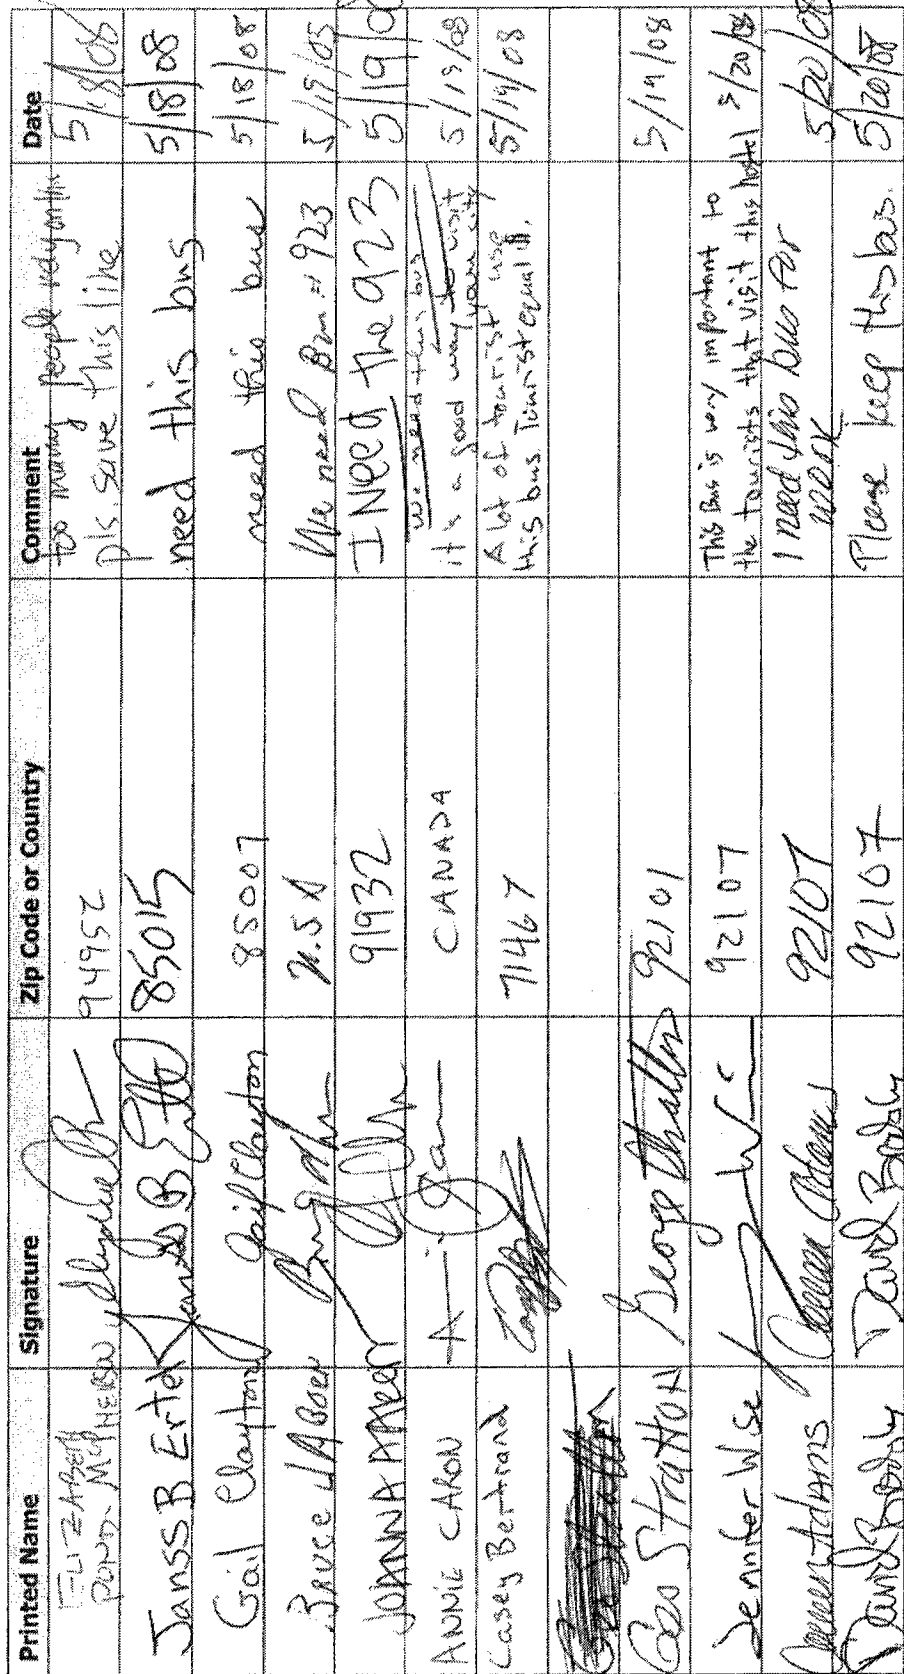 Printed Name Signature Zip Code or Country Comment Date
ELIZABETH 94952 too many people rely on this 5/18/08
POND-McPHERSON pls. save this line
JansS B Erte 85015 need this bus 5/18/08
Gail Clayton Gail Clayton 85007 need this bus 5/18/08
Bruce U.S.A We need Bus # 923 5/19/08
JOANNA 91932 I Need the 923 5/19/0
ANNIE CARON CANADA we need this bus 5/19/08
it is a good way to visit your city
Casey Bertrand 71467 A lot of tourist use 5/19/08
this bus Tourist equal $.
Geo Stratton George Stratton 92101 5/19/08
Jennifer Wise 92107 This Bus is very important to 5/20/08
the tourists that visit this hostel
Adams Adams 92107 I need this bus for 5/20/08
work
David Brody David Brody 92107 Please keep this bus. 5/20/08